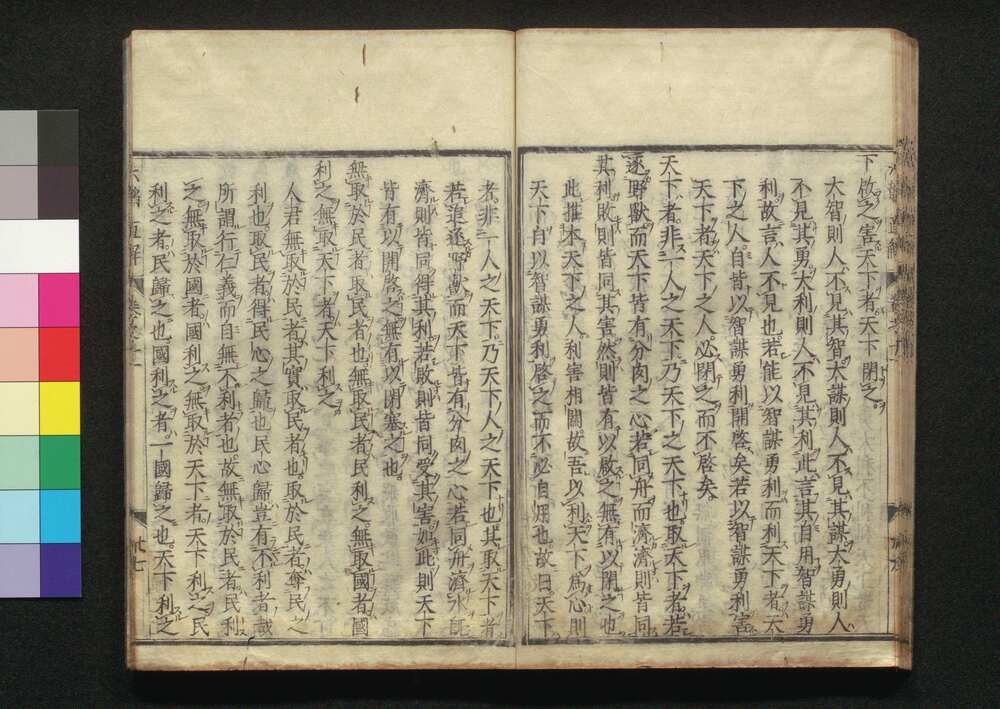 下啓之害天下者天下閉之
大智則人不見其智大謀則人不見其謀大勇則人
不見其勇大利則人不見其利此言其自用智謀勇
利故言人不見也若能以智謀勇利而利天下者天
下之人自皆以智謀勇利開啓矣若以智謀勇利害
天下者天下之人必閉之而不啓矣
天下者非一人之天下乃天下之天下也取天下者若
逐野獸而天下皆有分肉之心若同舟而濟濟則皆同
其利敗則皆同其害然則皆有以啟之無有以閉之也
此推本天下之人利害相關故吾以利天下爲心則
天下自以智謀勇利啓之而不必自用也故曰天下
者非一人之天下乃天下人之天下也其取天下者
若追逐野獸而天下皆有分肉之心若同舟濟水既
濟則皆同得其利若敗則皆同受其害如此則天下
皆有以開啓之無有以閉塞之也
無取於民者取民者也無取民者民利之無取國者國
利之無取天下者天下利之
人君無取於民者其實取民者也取於民者奪民之
利也取民者得民心之歸也民心歸豈有不利者哉
所謂行仁義而自無不利者也故無取於民者民利
之無取於國者國利之無取於天下者天下利之民
利之者民歸之也國利之者一國歸之也天下利之
六韜直解